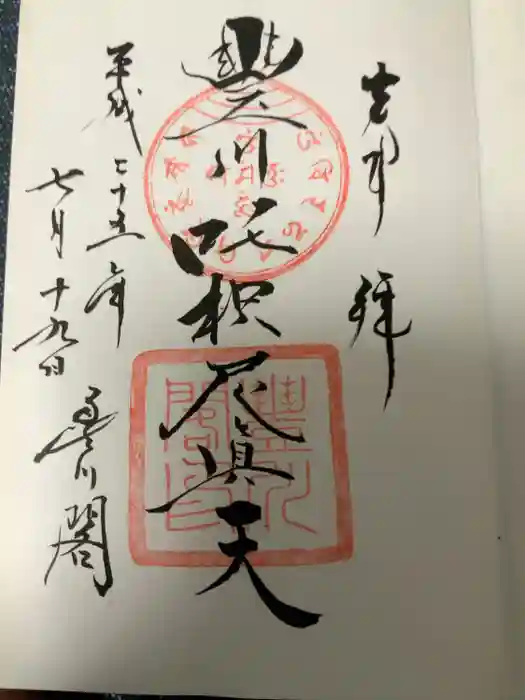 奉拝
豐川吒枳尼眞天
平成二十五年
七月十九日
豊川閣
豐川
閣印